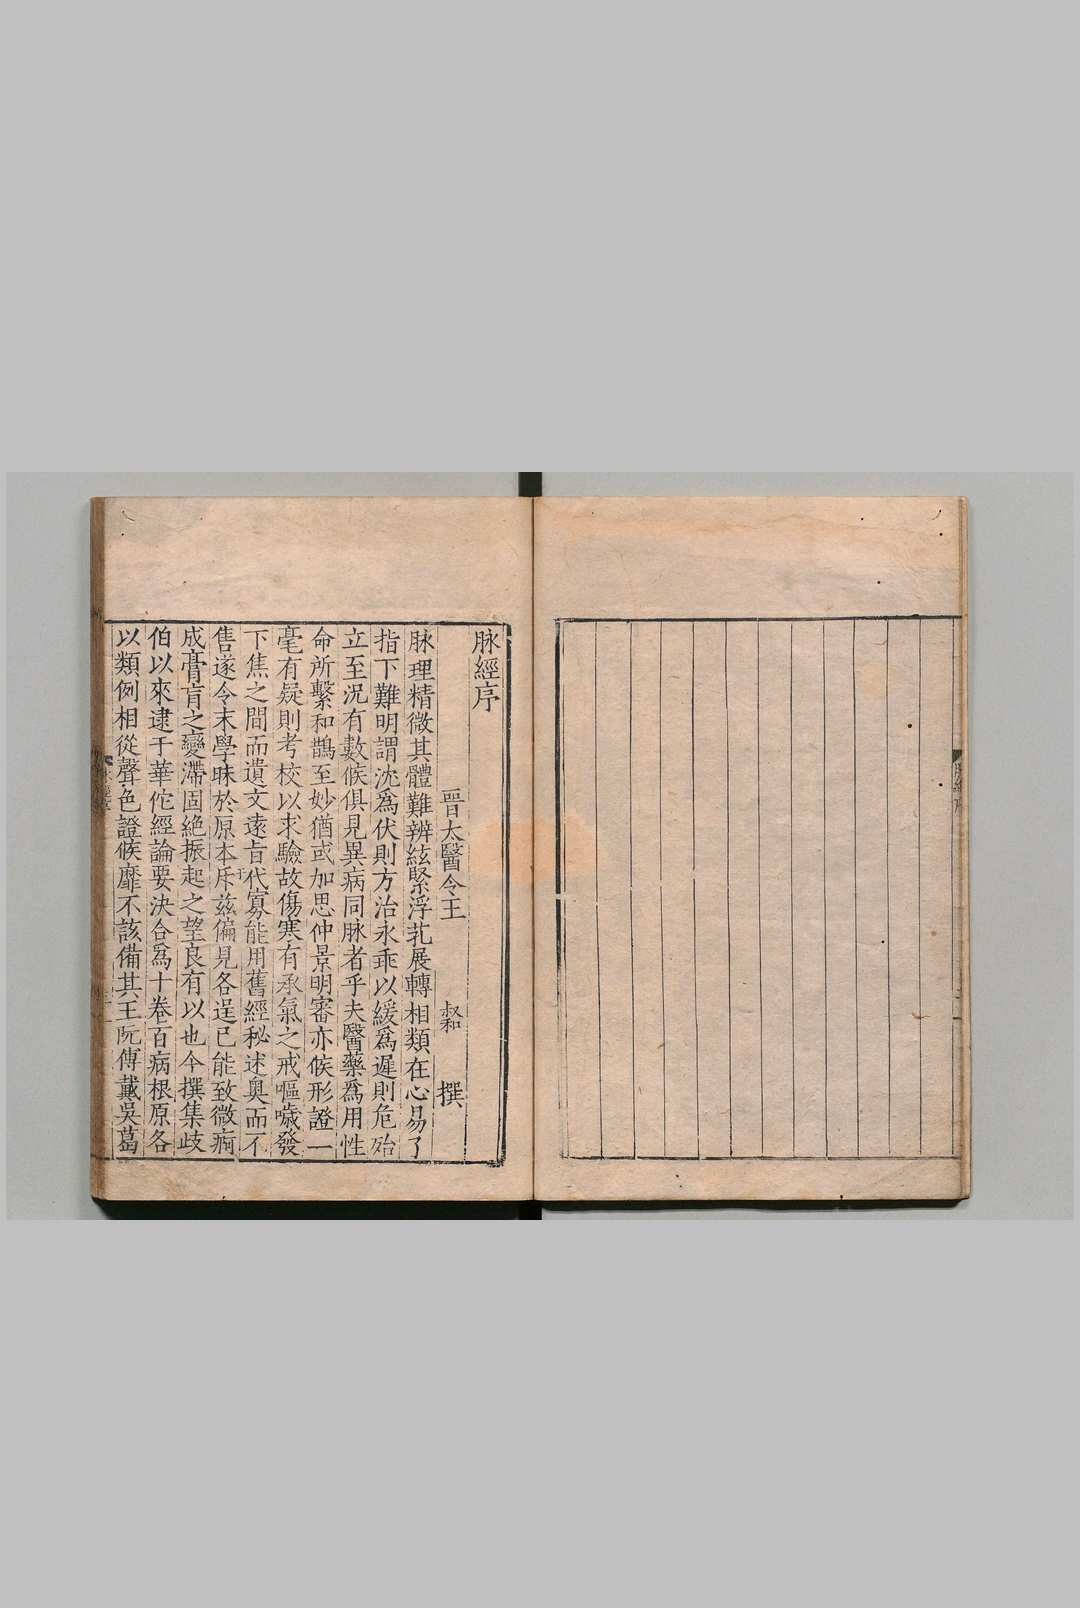 脉經序
晉太醫令王 叔和 撰
脉理精微其體難辨絃緊浮芤展轉相類在心易了
指下難明謂沈爲伏則方治永乖以緩爲遲則危殆
立至況有數候俱見異病同脉者乎夫醫藥爲用性
命所繫和鵲至妙猶或加思仲景明審亦候形證一
毫有疑則考校以求驗故傷寒有承氣之戒嘔噦發
下焦之間而遺文遠旨代寡能用舊經秘述奧而不
售遂令末學昧於原本斥兹偏見各逞己能致微痾
成膏肓之變滯固絶振起之望良有以也今撰集歧
伯以來逮于華佗經論要決合爲十卷百病根原各
以類例相從聲色證候靡不該備其王阮傅戴吳葛
脉經序